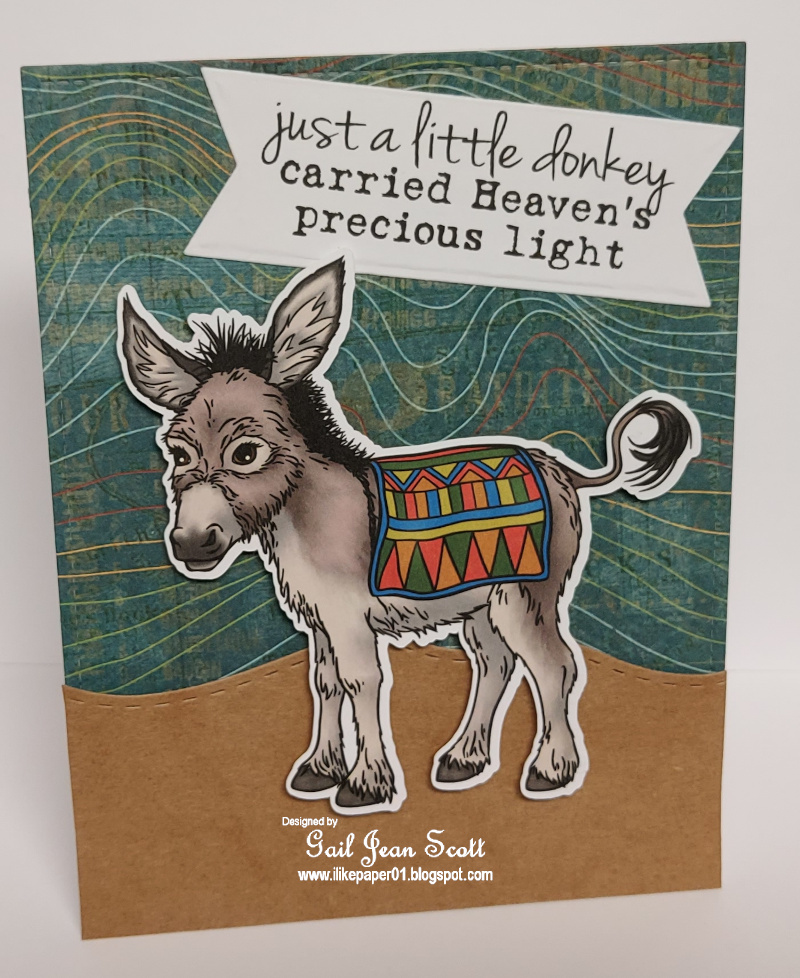 just a little donkey
carried Heaven's
precious light
Designed by
Gail Jean Scott
www.ilikepaper01.blogspot.com